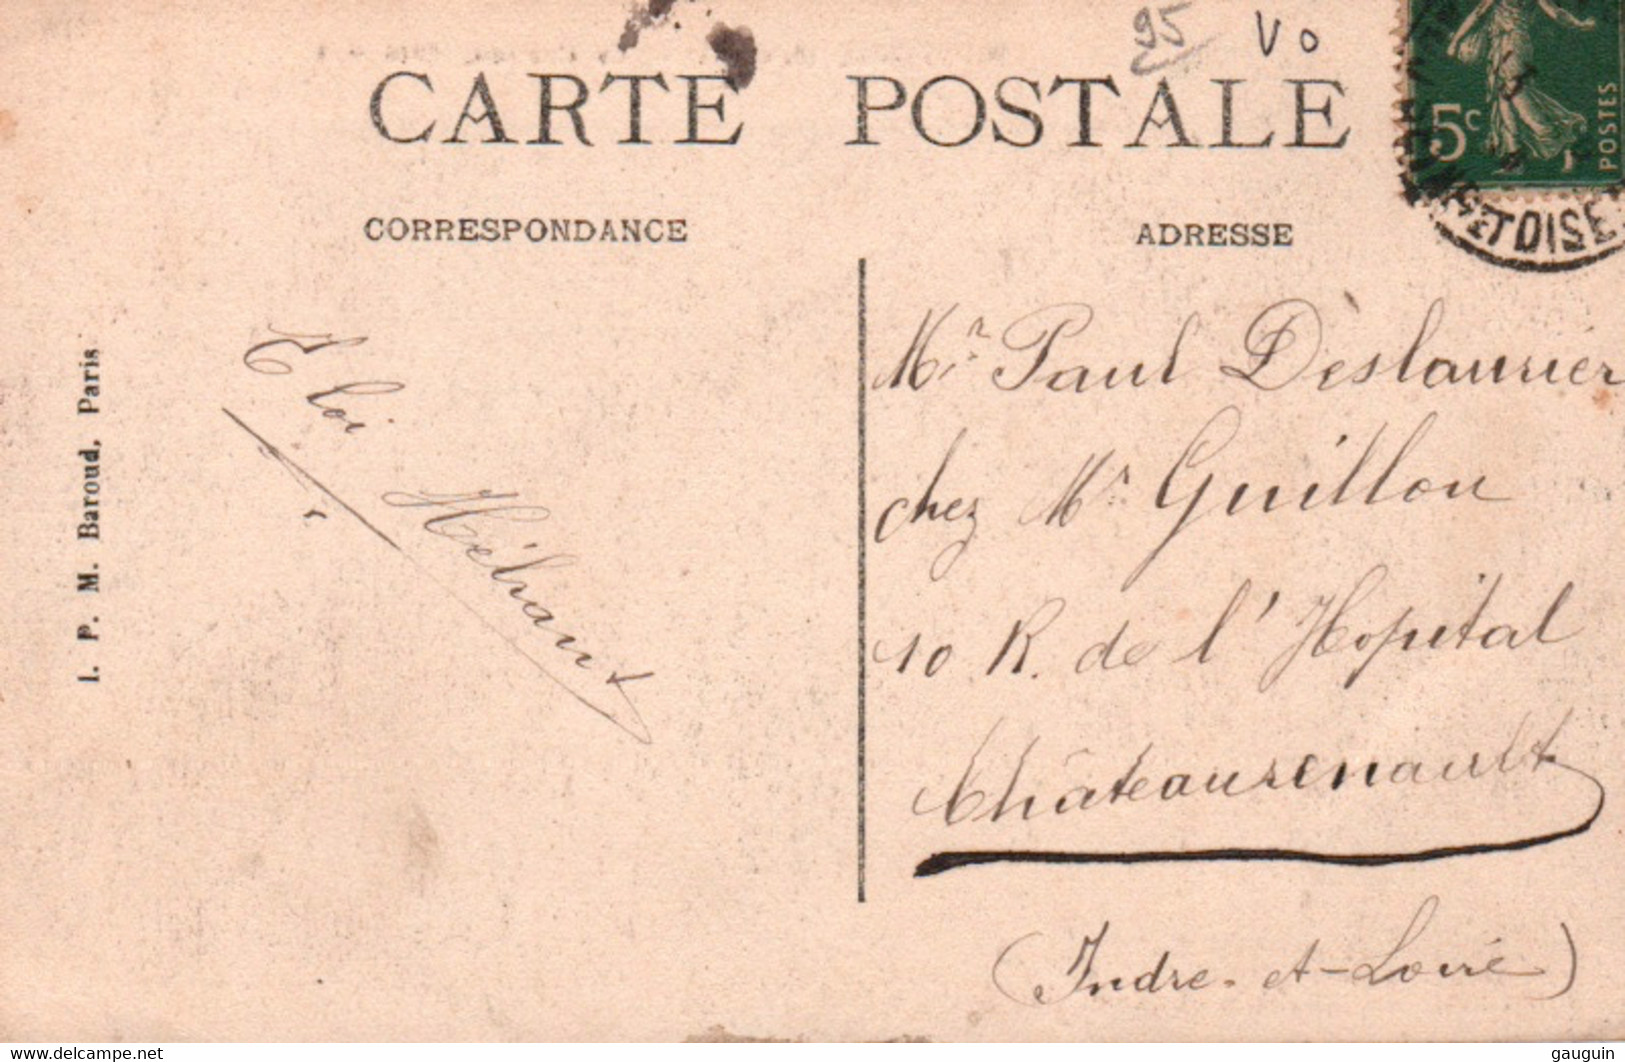 95 VO
CARTE POSTALE
5c
POSTES
TOISE
CORRESPONDANCE
ADRESSE
I. P. M. Baroud, Paris
Eloi Hébrant
Mr Paul Dèslaurier
chez Mr Guillon
10 R. de l'Hopital
Châteaurenault
(Indre-et-Loire)
https://www.delcampe.net
gauguin